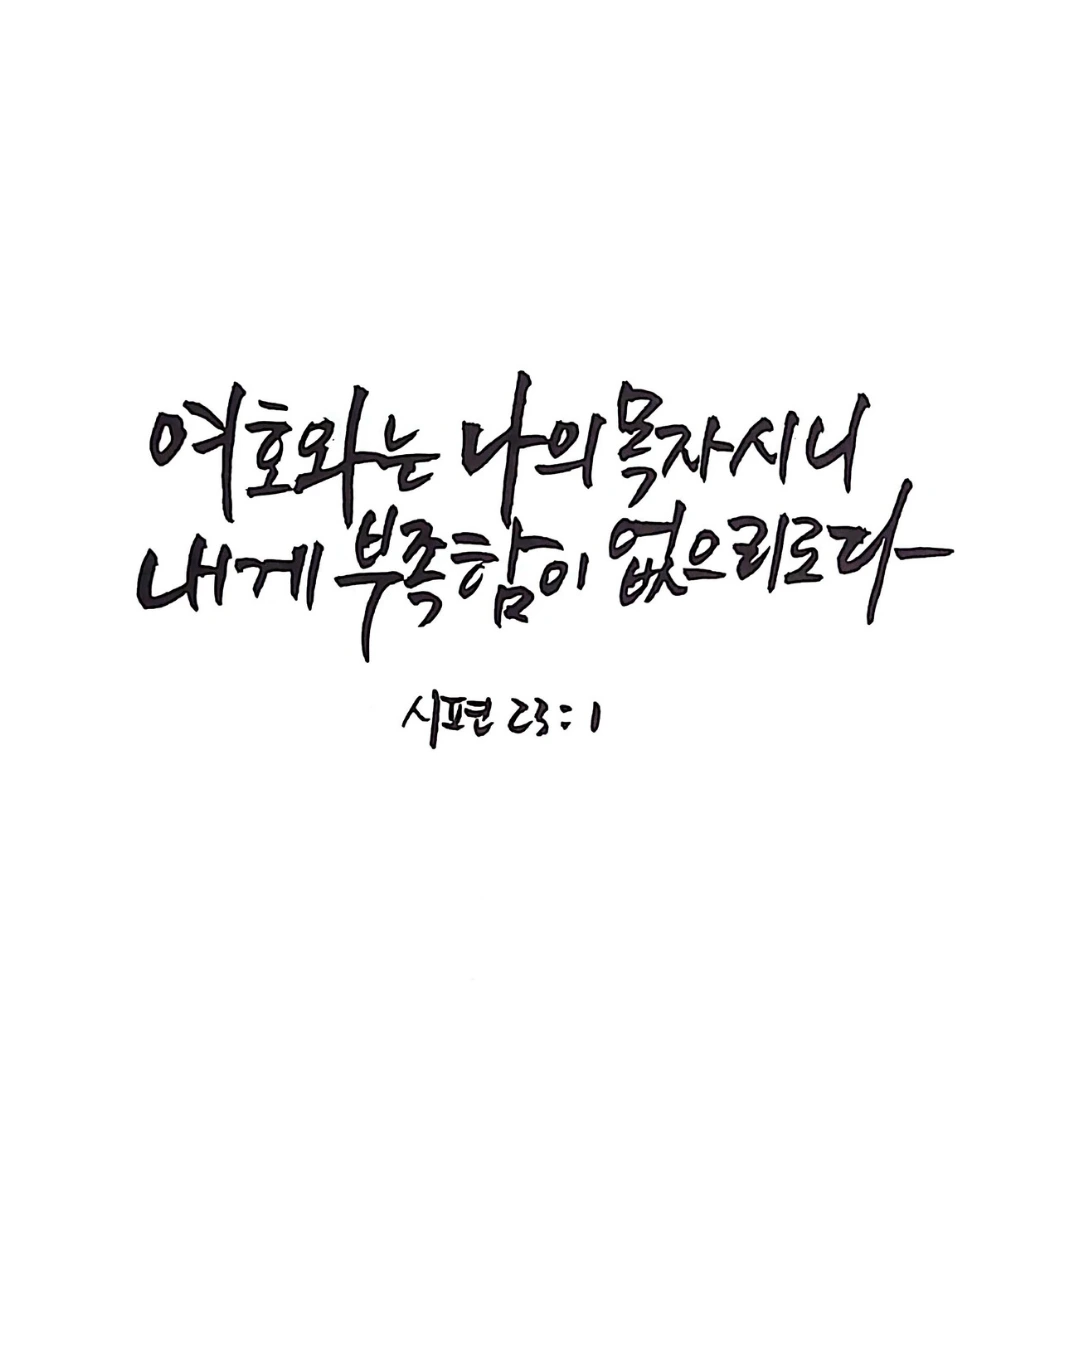 여호와는 나의 목자시니
내게 부족함이 없으리로다
시편 23:1